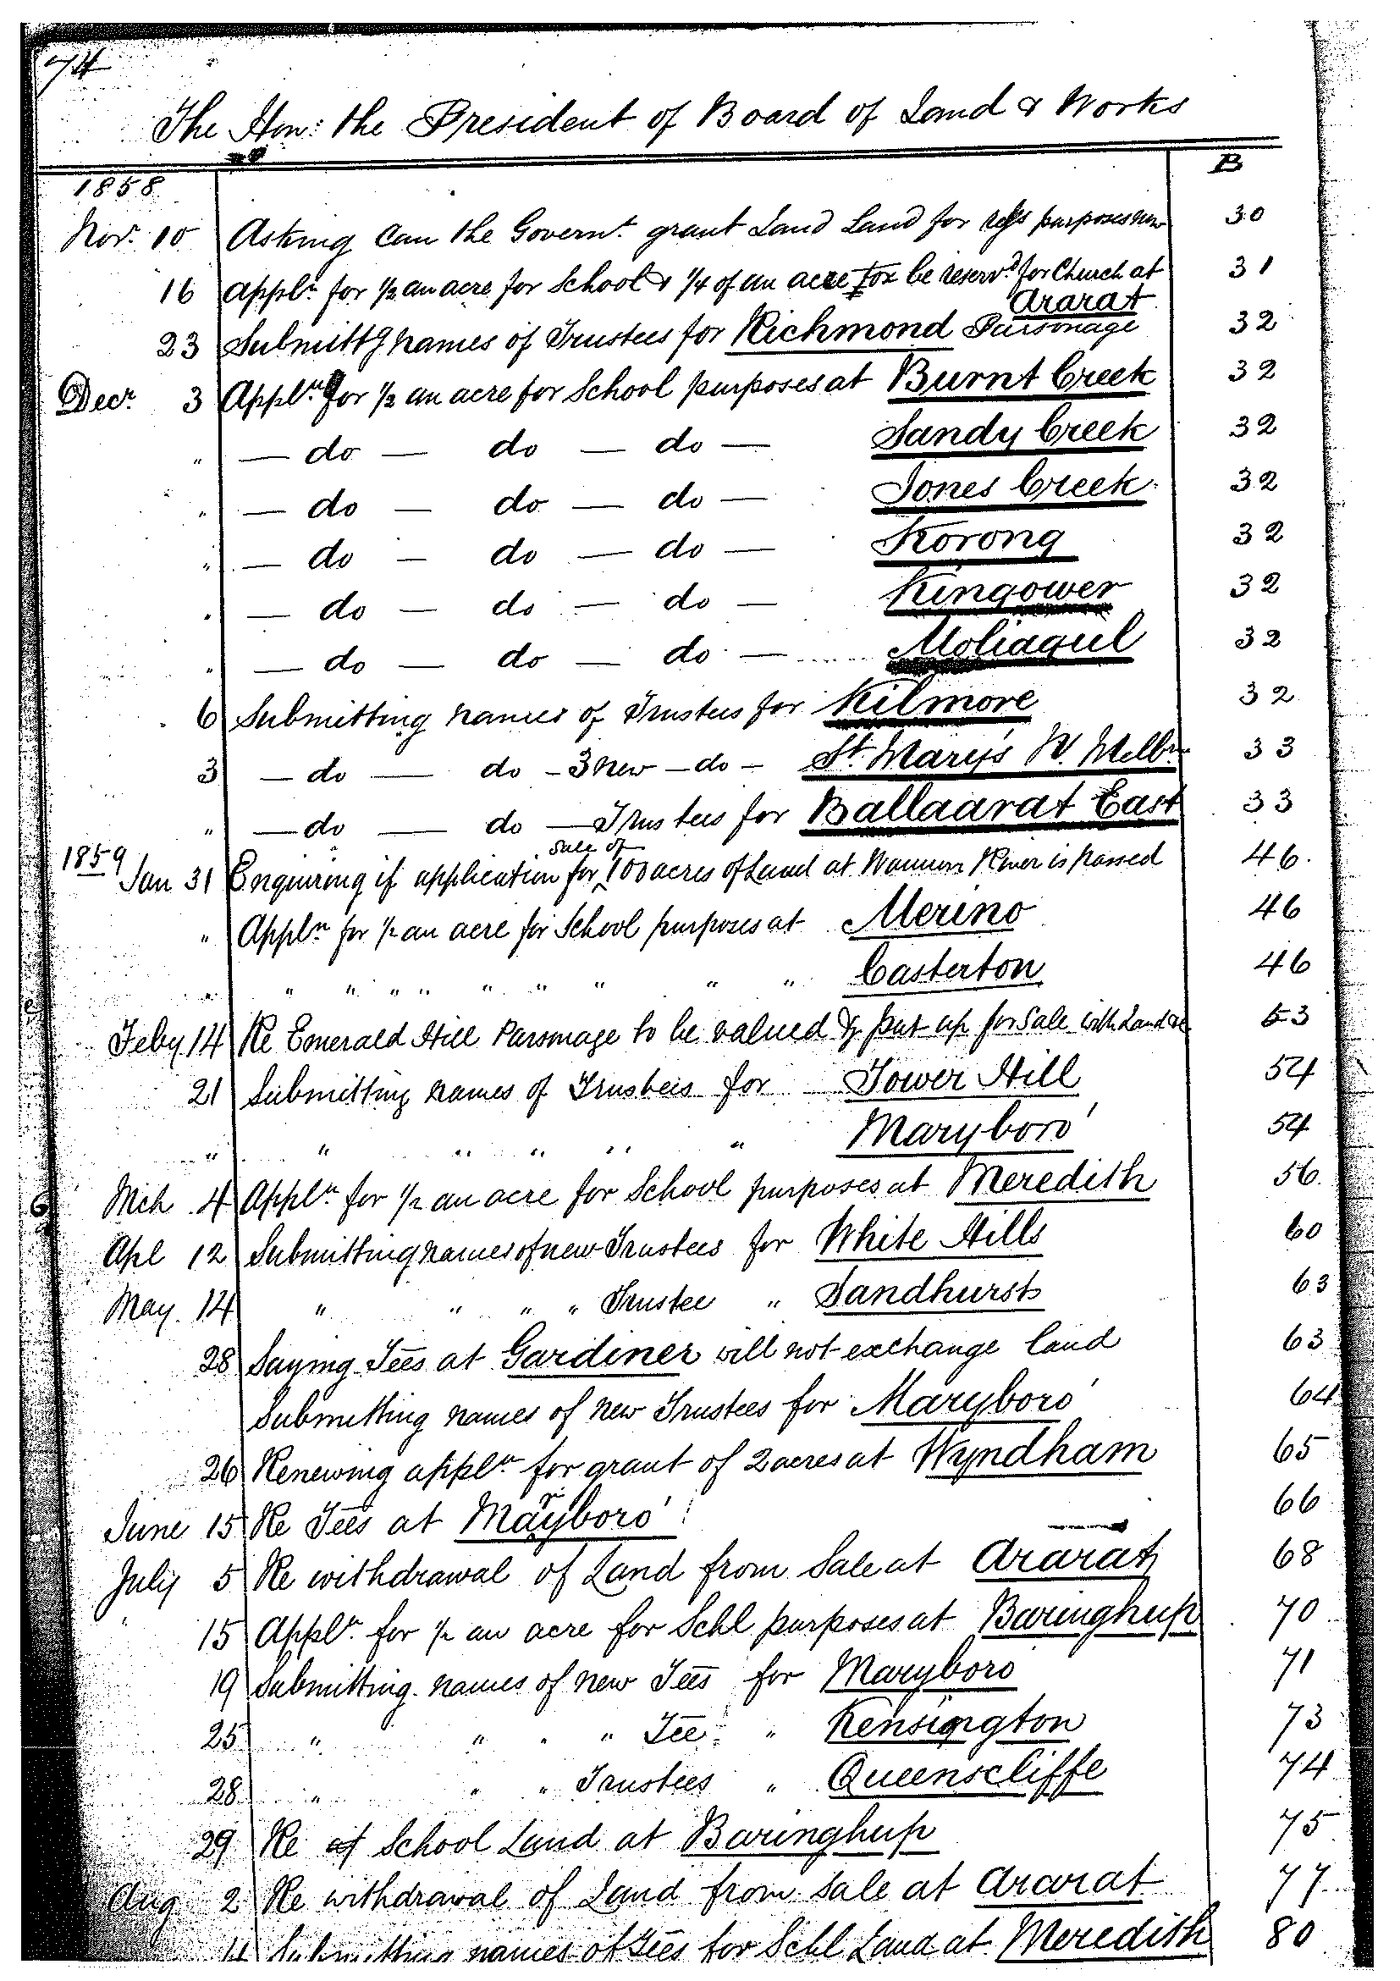 74
The Hon: the President of Board of Land & Works
B
1858
Nov. 10 Asking can the Governt. grant Land Land for purposes now 30
16 Appln. for 1/2 an acre for School & 1/4 of an acre to be reservd. for Church at Ararat 31
23 Submittg names of Trustees for Richmond Parsonage 32
Decr. 3 Appln. for 1/2 an acre for School purposes at Burnt Creek 32
" — do — do — do — Sandy Creek 32
" — do — do — do — Jones Creek 32
" — do — do — do — Korong 32
" — do — do — do — Kingower 32
" — do — do — do — Moliagul 32
6 Submitting names of Trustees for Kilmore 32
3 — do — do — 3 new — do — St. Mary's W. Melbn 33
" — do — do — Trustees for Ballaarat East 33
1859 Jan 31 Enquiring if application for sale of 100 acres of Land at Wannon River is passed 46.
" Appln. for 1/2 an acre for School purposes at Merino 46
" " " " " " " " " " Casterton 46
Feby 14 Re Emerald Hill Parsonage to be valued & put up for sale with Land &c 53
21 Submitting names of Trustees for Tower Hill 54
" " " " " " Maryboro' 54
Mch 4 Appln. for 1/2 an acre for School purposes at Meredith 56
Apl 12 Submitting names of new Trustees for White Hills 60
May 14 " " " " Trustee " Sandhurst 63
28 Saying Tees at Gardiner will not exchange land 63
Submitting names of new Trustees for Maryboro' 64
26 Renewing appln. for grant of 2 acres at Wyndham 65
June 15 Re Tees at Maryboro' 66
July 5 Re withdrawal of Land from Sale at Ararat 68
15 Appln. for 1/2 an acre for Schl purposes at Baringhup 70
19 Submitting names of new Tees for Maryboro 71
25 " " " " Tee " Kensington 73
28 " " " Trustees " Queenscliffe 74
29 Re of School Land at Baringhup 75
Aug 2 Re withdrawal of Land from sale at Ararat 77
4 Submitting names of Tees for Schl Land at Meredith 80